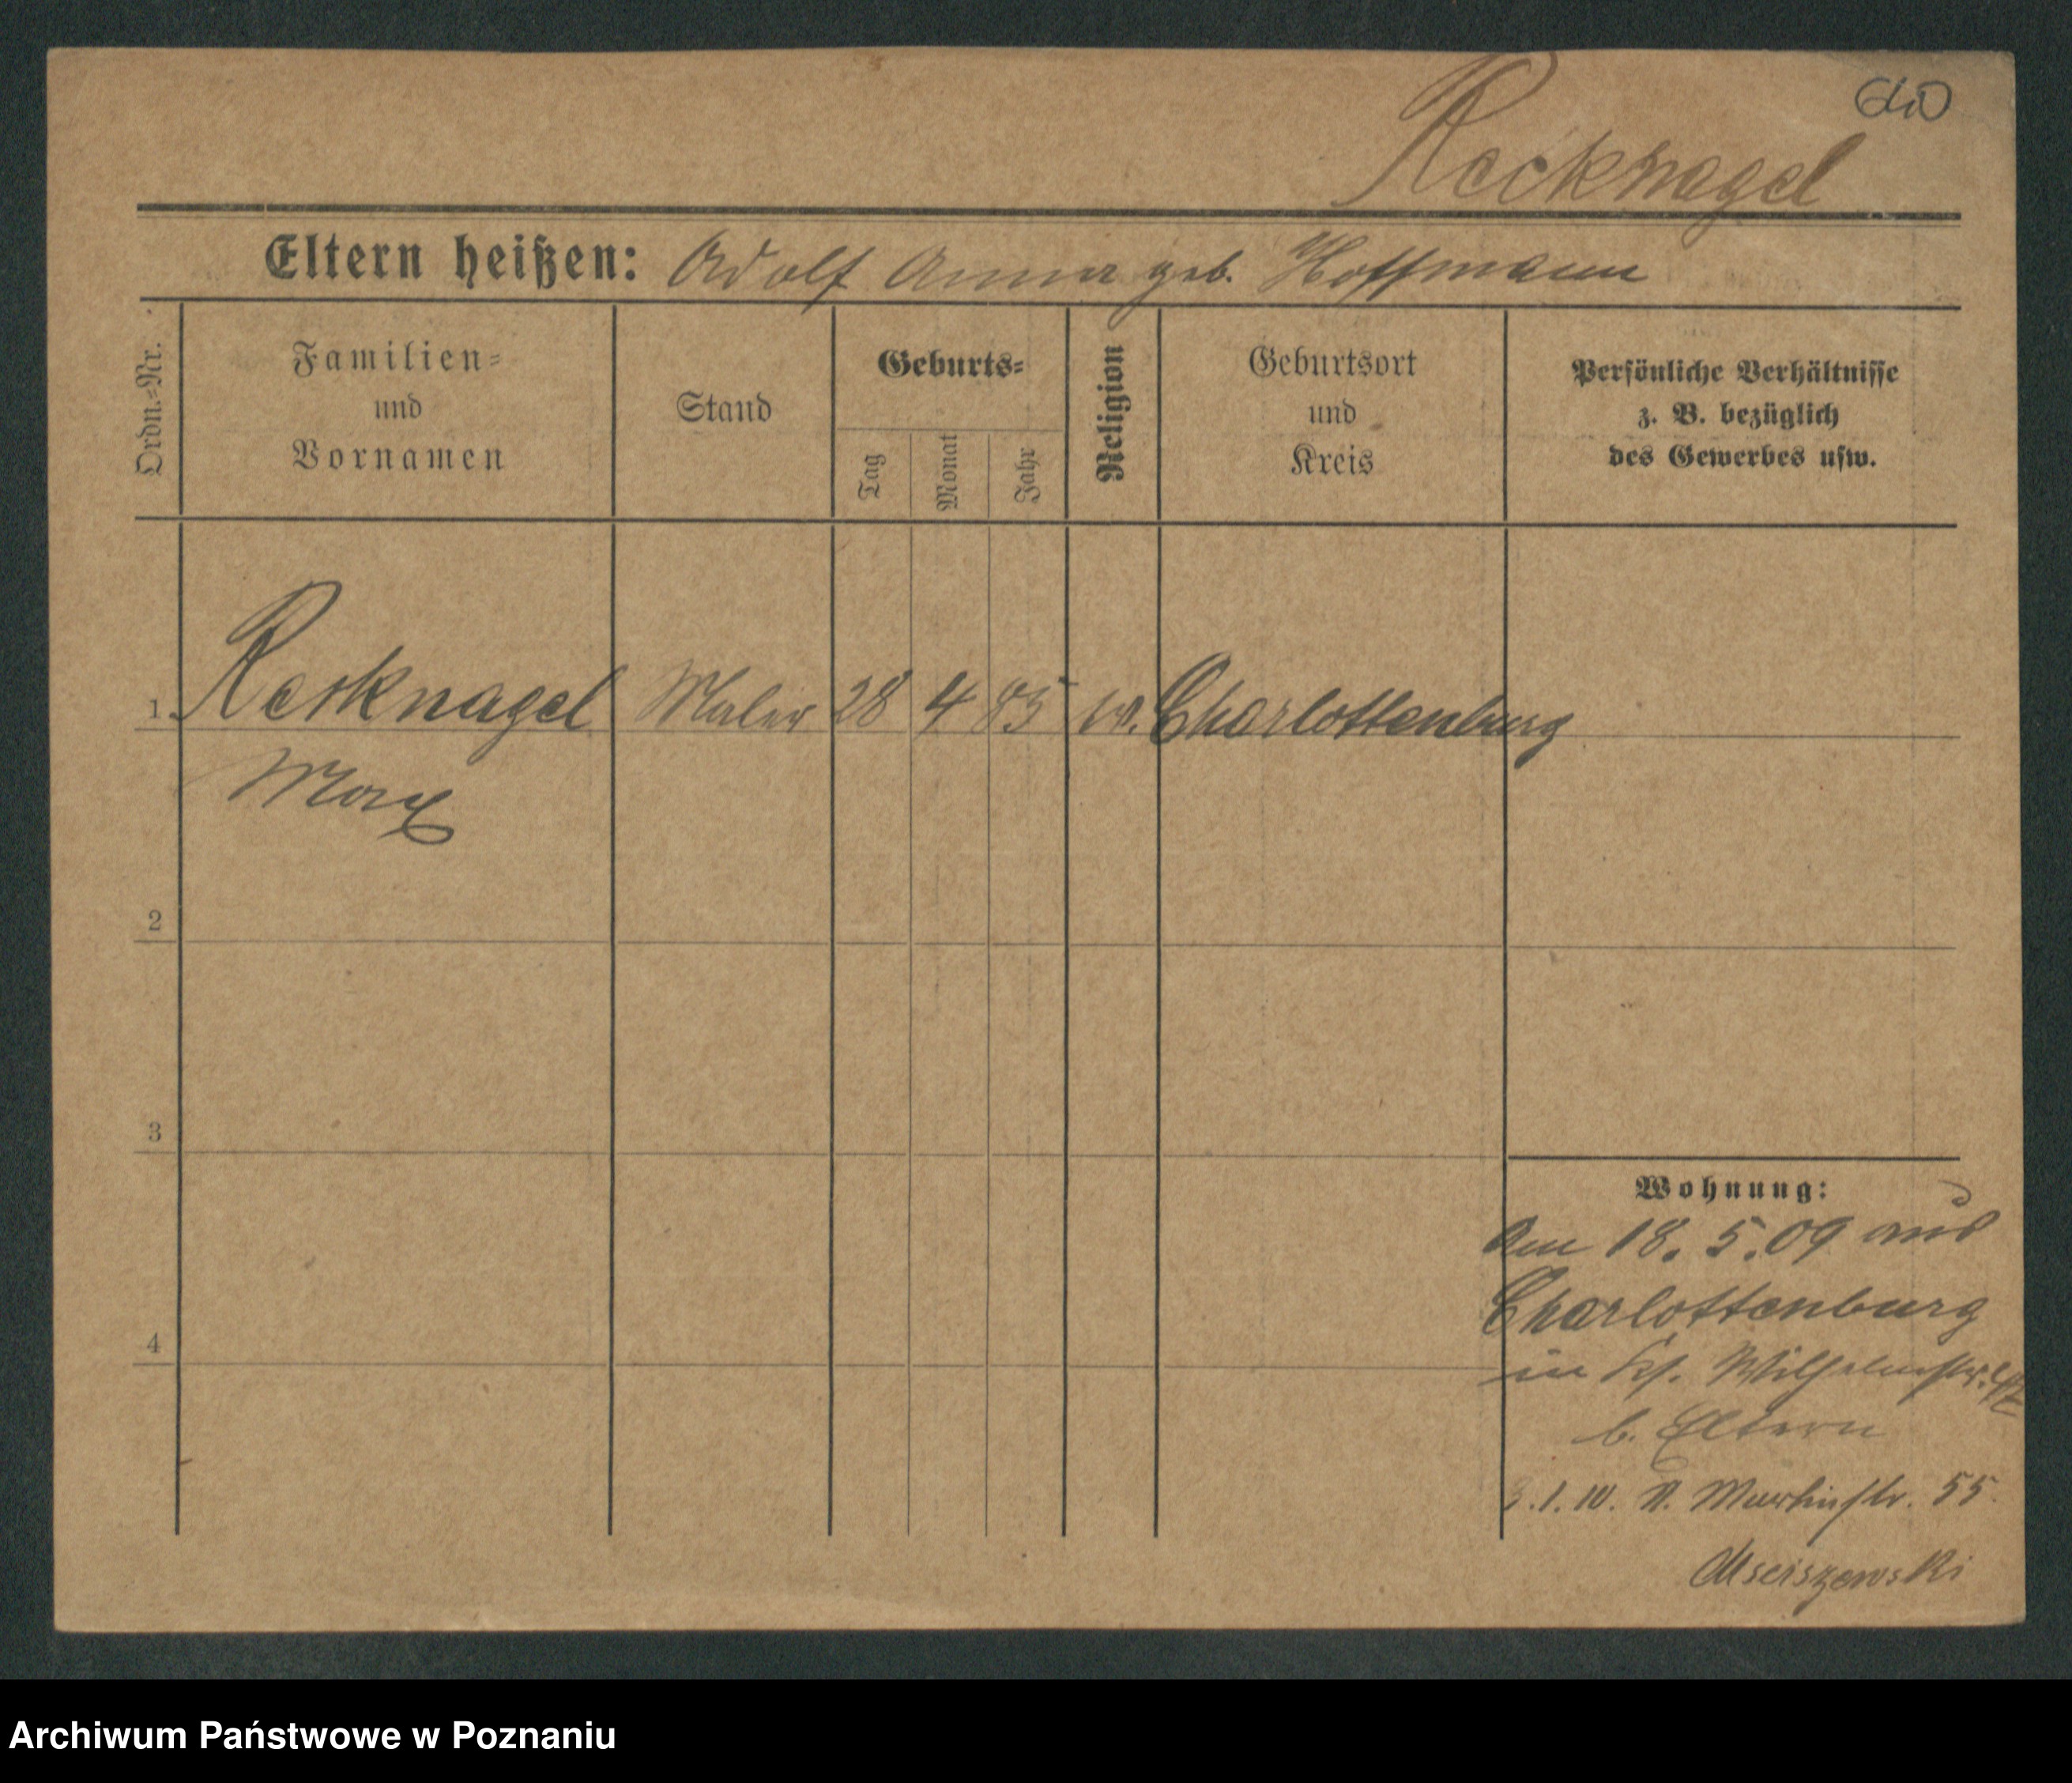 Recknagel
Eltern heißen: Adolf Anna geb. Hoffmann
Ordn.=Nr.
Familien=
und
Vornamen
Stand
Geburts=
Tag
Monat
Jahr
Religion
Geburtsort
und
Kreis
Persönliche Verhältnisse
z. B. bezüglich
des Gewerbes usw.
1. Recknagel Maler 28 4 85 Charlottenburg
Max
2
3
4
Wohnung:
Am 18. 5. 09 aus
Charlottenburg
in Wilhelmstr.
b. Eltern
.1.10. Martinstr. 55
Msciszewski
Archiwum Państwowe w Poznaniu